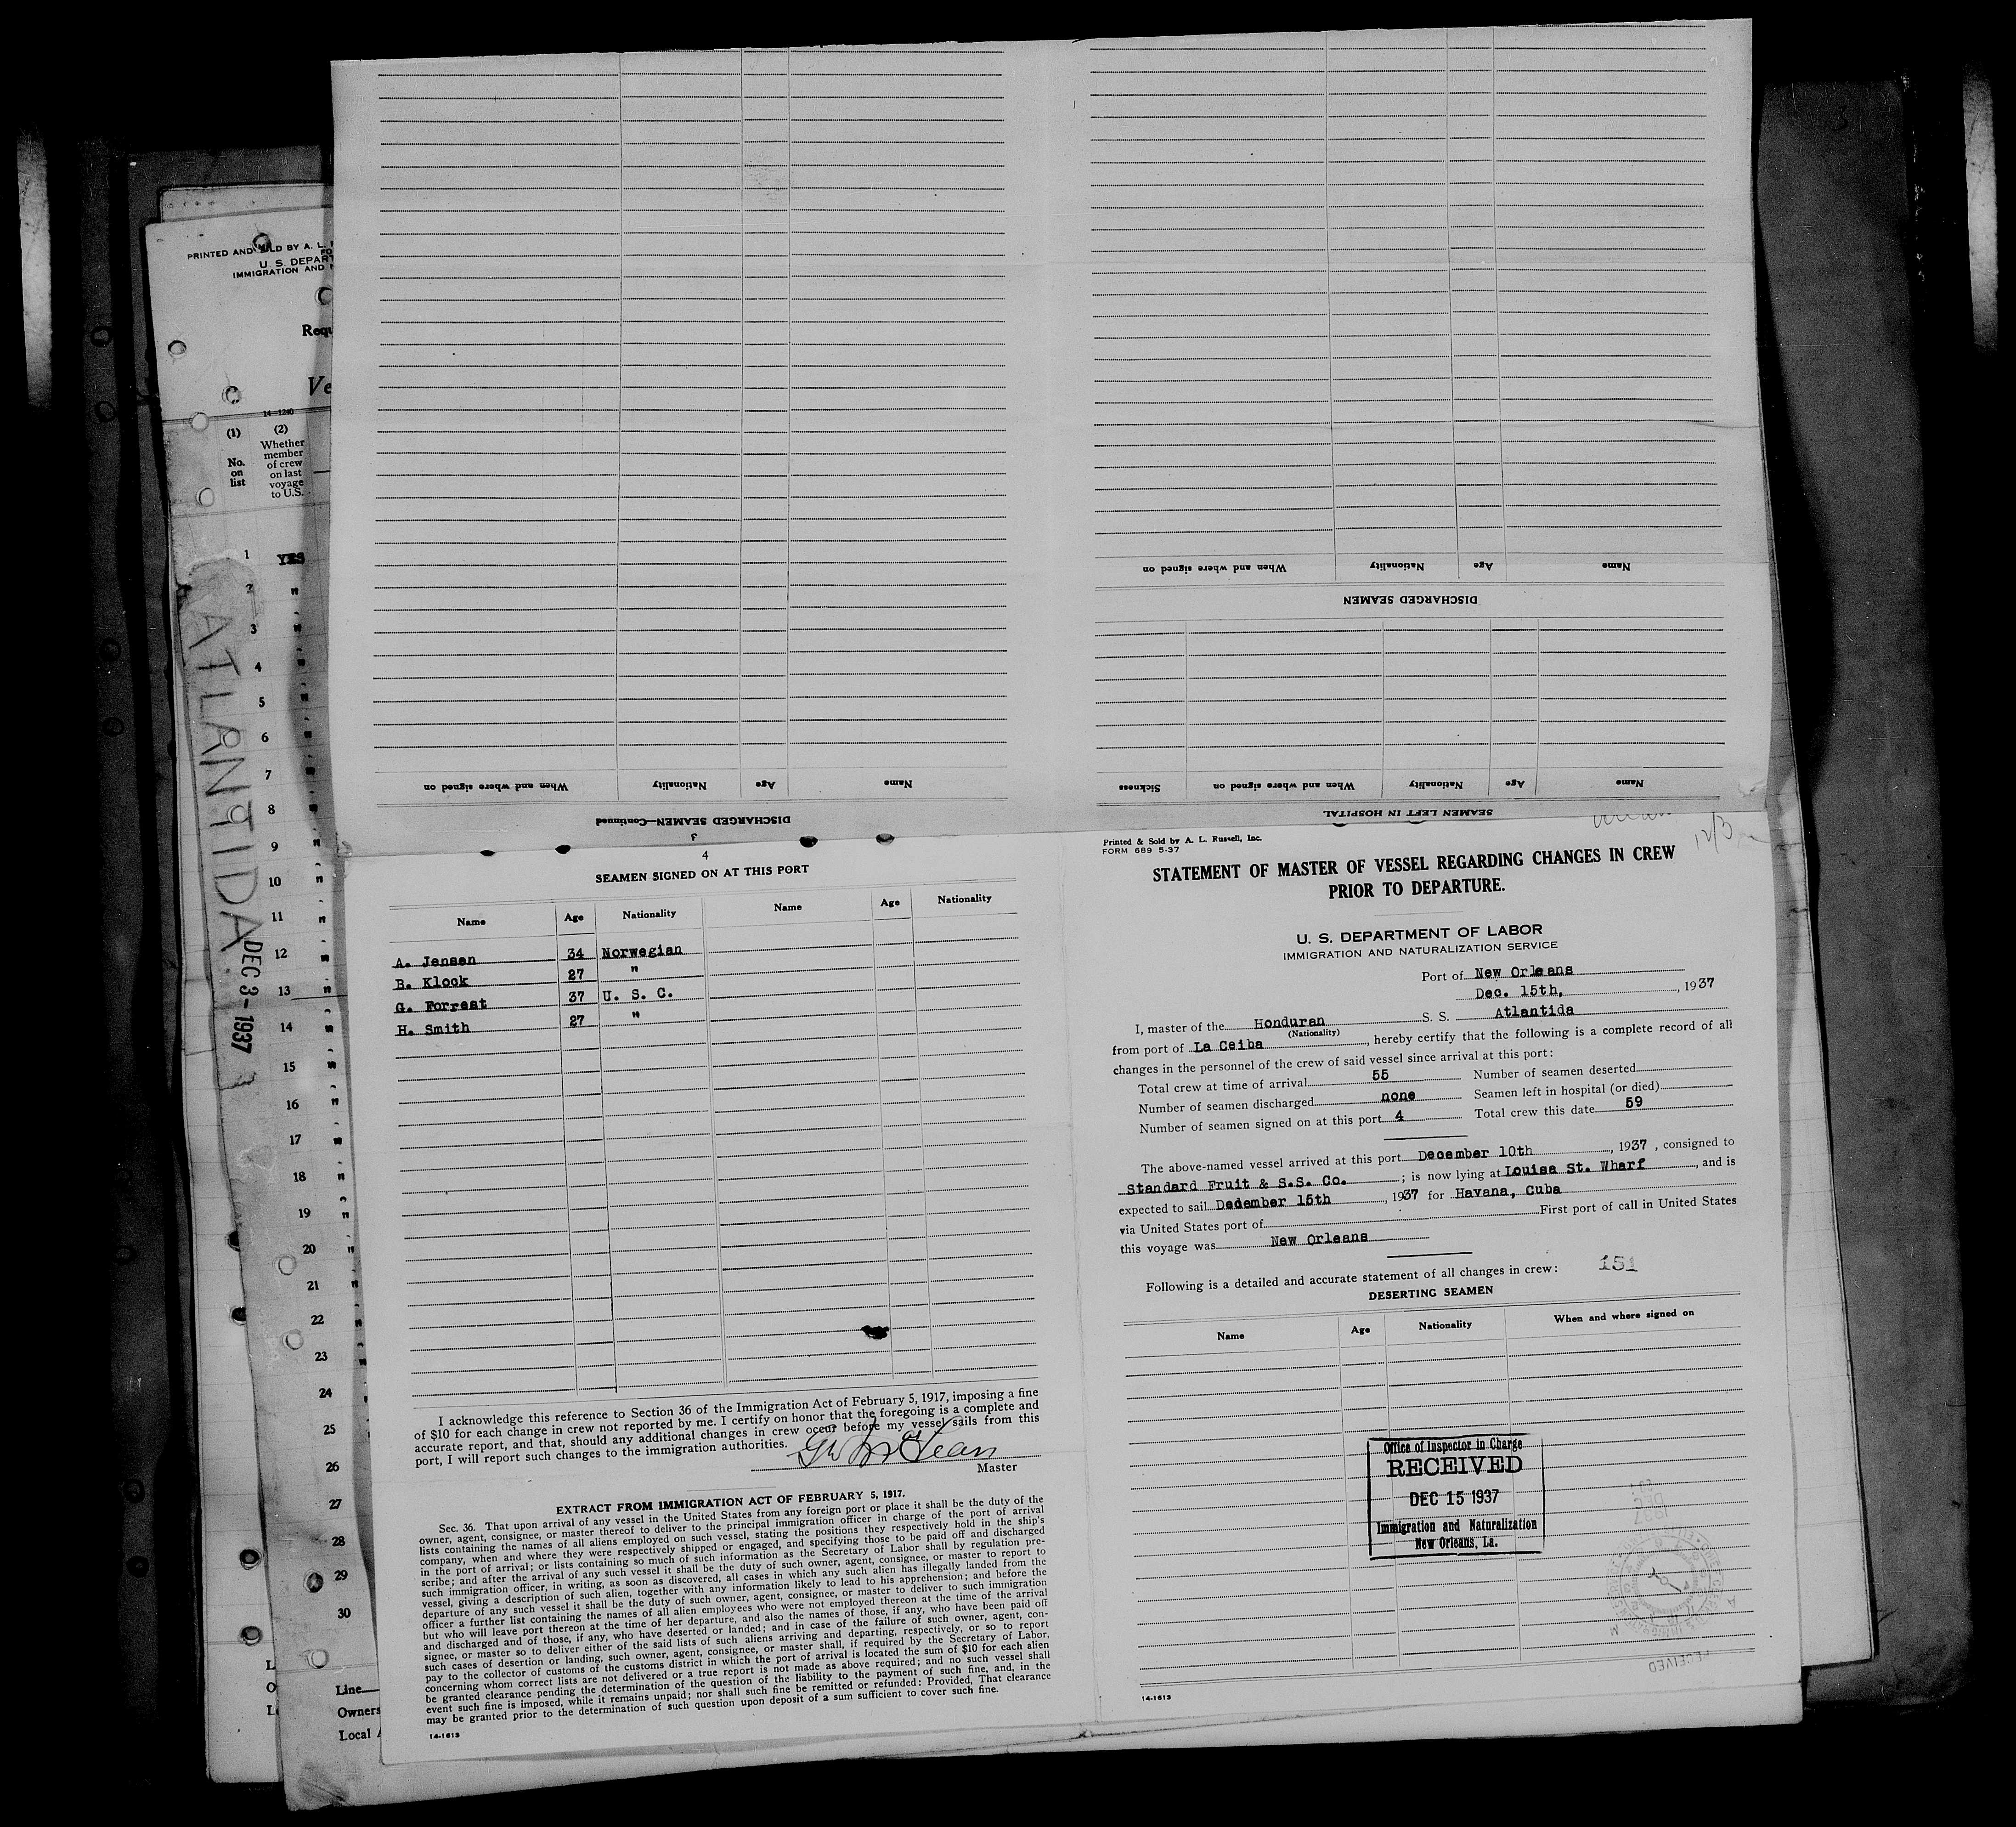 PRINTED AND SOLD BY A. L.
U. S. DEPART
IMMIGRATION AND
Requ
Ve
14—1240
(1) (2)
No. on list
Whether member of crew on last voyage to U.S.
1 YES
2 "
3 "
4 "
5 "
6 "
7 "
8 "
9 "
10 "
11 "
12 "
13 "
14 "
15 "
16 "
17 "
18 "
19 "
20 "
21 "
22 "
23 "
24 "
25 "
26
27
28
29
30
Line
Owners
Local
ATLANTIDA
DEC 3-1937
When and where signed on Nationality Age Name
DISCHARGED SEAMEN—Continued
3
When and where signed on Nationality Age Name
DISCHARGED SEAMEN
Sickness When and where signed on Nationality Age Name
SEAMEN LEFT IN HOSPITAL
4
SEAMEN SIGNED ON AT THIS PORT
Name Age Nationality Name Age Nationality
A. Jensen 34 Norwegian
B. Klock 27 "
G. Forrest 37 U. S. C.
H. Smith 27 "
I acknowledge this reference to Section 36 of the Immigration Act of February 5, 1917, imposing a fine
of $10 for each change in crew not reported by me. I certify on honor that the foregoing is a complete and
accurate report, and that, should any additional changes in crew occur before my vessel sails from this
port, I will report such changes to the immigration authorities.
Master
EXTRACT FROM IMMIGRATION ACT OF FEBRUARY 5, 1917.
Sec. 36. That upon arrival of any vessel in the United States from any foreign port or place it shall be the duty of the
owner, agent, consignee, or master thereof to deliver to the principal immigration officer in charge of the port of arrival
lists containing the names of all aliens employed on such vessel, stating the positions they respectively hold in the ship's
company, when and where they were respectively shipped or engaged, and specifying those to be paid off and discharged
in the port of arrival; or lists containing so much of such information as the Secretary of Labor shall by regulation pre-
scribe; and after the arrival of any such vessel it shall be the duty of such owner, agent, consignee, or master to report to
such immigration officer, in writing, as soon as discovered, all cases in which any such alien has illegally landed from the
vessel, giving a description of such alien, together with any information likely to lead to his apprehension; and before the
departure of any such vessel it shall be the duty of such owner, agent, consignee, or master to deliver to such immigration
officer a further list containing the names of all alien employees who were not employed thereon at the time of the arrival
but who will leave port thereon at the time of her departure, and also the names of those, if any, who have been paid off
and discharged and of those, if any, who have deserted or landed; and in case of the failure of such owner, agent, con-
signee, or master so to deliver either of the said lists of such aliens arriving and departing, respectively, or so to report
such cases of desertion or landing, such owner, agent, consignee, or master shall, if required by the Secretary of Labor,
pay to the collector of customs of the customs district in which the port of arrival is located the sum of $10 for each alien
concerning whom correct lists are not delivered or a true report is not made as above required; and no such vessel shall
be granted clearance pending the determination of the question of the liability to the payment of such fine, and, in the
event such fine is imposed, while it remains unpaid; nor shall such fine be remitted or refunded: Provided, That clearance
may be granted prior to the determination of such question upon deposit of a sum sufficient to cover such fine.
14-1613
Printed & Sold by A. L. Russell, Inc.
FORM 689 5-37
STATEMENT OF MASTER OF VESSEL REGARDING CHANGES IN CREW
PRIOR TO DEPARTURE.
U. S. DEPARTMENT OF LABOR
IMMIGRATION AND NATURALIZATION SERVICE
Port of New Orleans
Dec. 15th, , 1937
I, master of the Honduran S. S. Atlantida
(Nationality)
from port of La Ceiba , hereby certify that the following is a complete record of all
changes in the personnel of the crew of said vessel since arrival at this port:
Total crew at time of arrival 55 Number of seamen deserted
Number of seamen discharged none Seamen left in hospital (or died)
Number of seamen signed on at this port 4 Total crew this date 59
The above-named vessel arrived at this port December 10th , 1937 , consigned to
Standard Fruit & S.S. Co. ; is now lying at Louisa St. Wharf , and is
expected to sail December 15th , 1937 for Havana, Cuba
via United States port of First port of call in United States
this voyage was New Orleans
Following is a detailed and accurate statement of all changes in crew: 151
DESERTING SEAMEN
Name Age Nationality When and where signed on
Office of Inspector in Charge
RECEIVED
DEC 15 1937
Immigration and Naturalization
New Orleans, La.
RECEIVED
14-1613